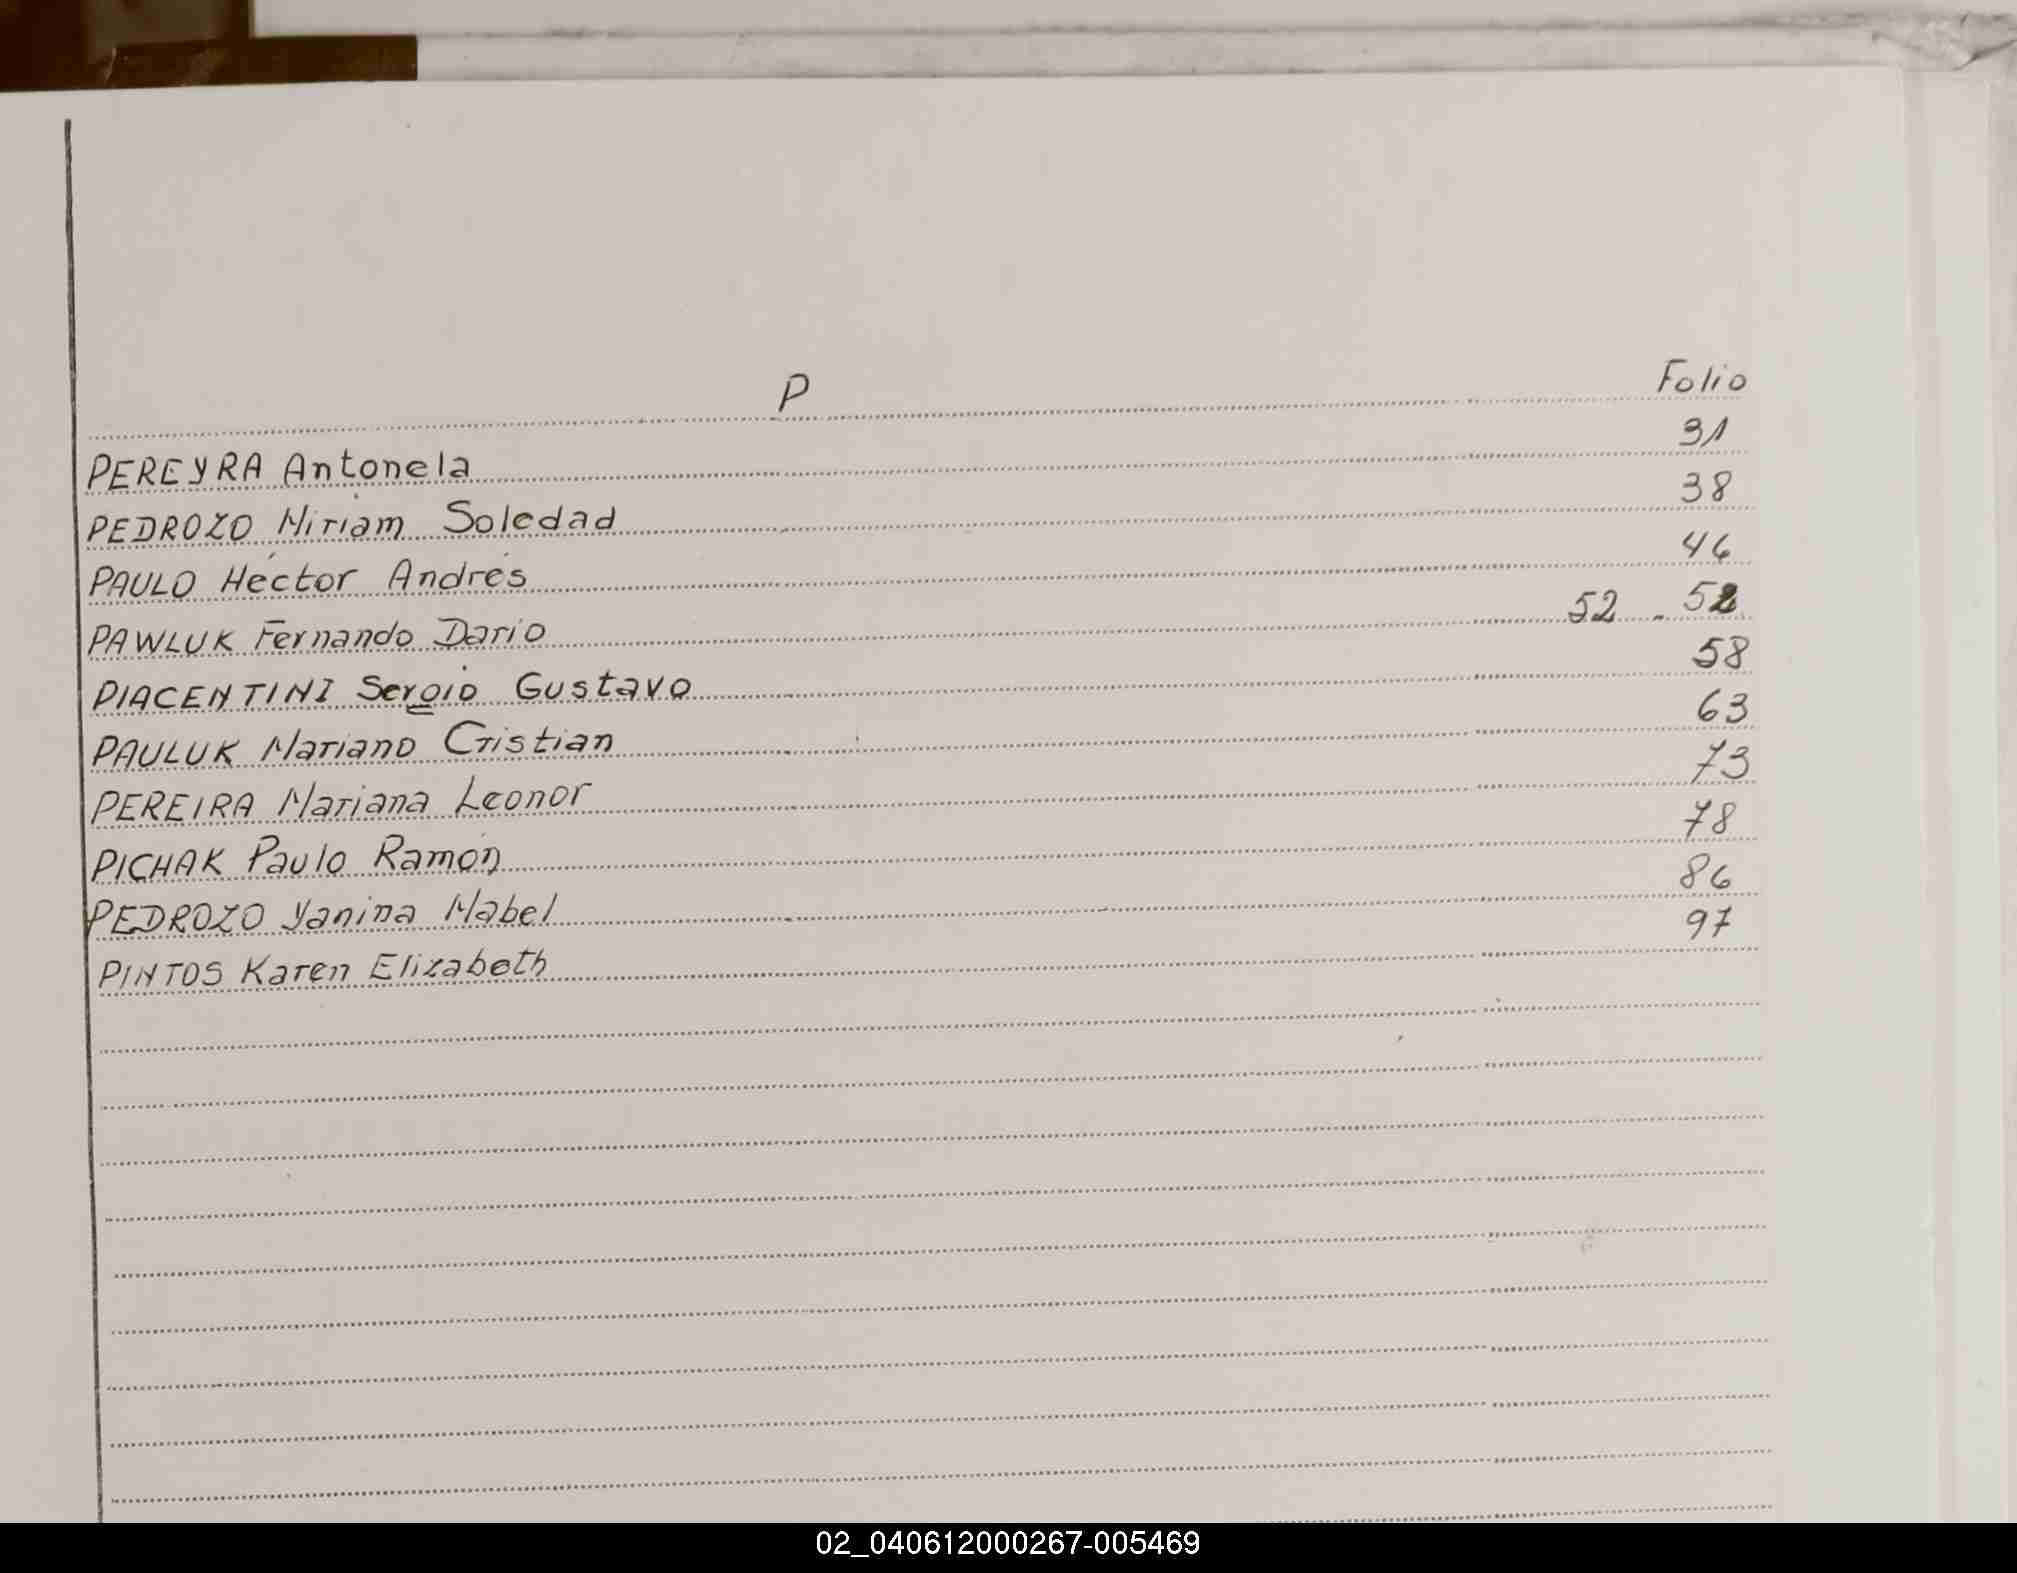 P Folio
PEREYRA Antonela 31
PEDROZO Miriam Soledad 38
PAULO Héctor Andrés 46
PAWLUK Fernando Dario 52 - 52
PIACENTINI Sergio Gustavo 58
PAULUK Mariano Cristian 63
PEREIRA Mariana Leonor 73
PICHAK Paulo Ramón 78
PEDROZO Yanina Mabel 86
PINTOS Karen Elizabeth 97
02_040612000267-005469